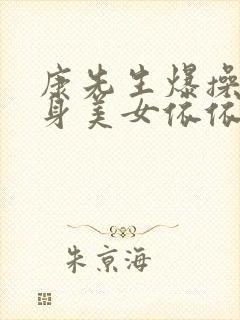 康先生爆操
身美女依依
朱京海